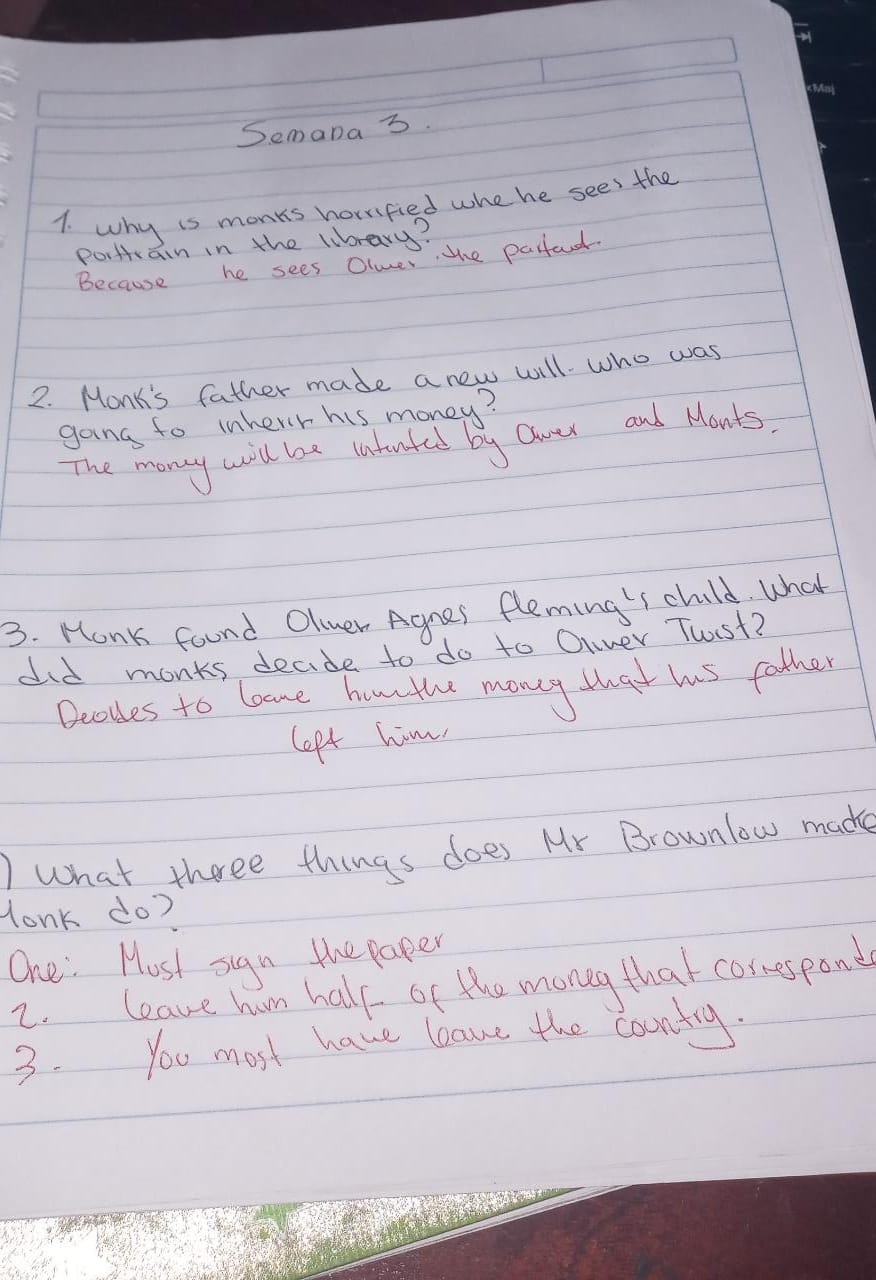 Semana 3.
1. Why is monks horrified whe he sees the
porttrain in the library?
Because he sees Oliver, the
2. Monk's father made a new will. Who was
going to inherit his money?
The money will be by Oliver and Monts.
3. Monk found Oliver Agnes fleming's child. What
did monks decide to do to Oliver Twist?
Decides to leave him the money that his father
left him.
) What three things does Mr Brownlow macke
Monk do?
One: Must sign the paper
2. leave him half of the money that corresponds
3. You most have leave the country.
Maj